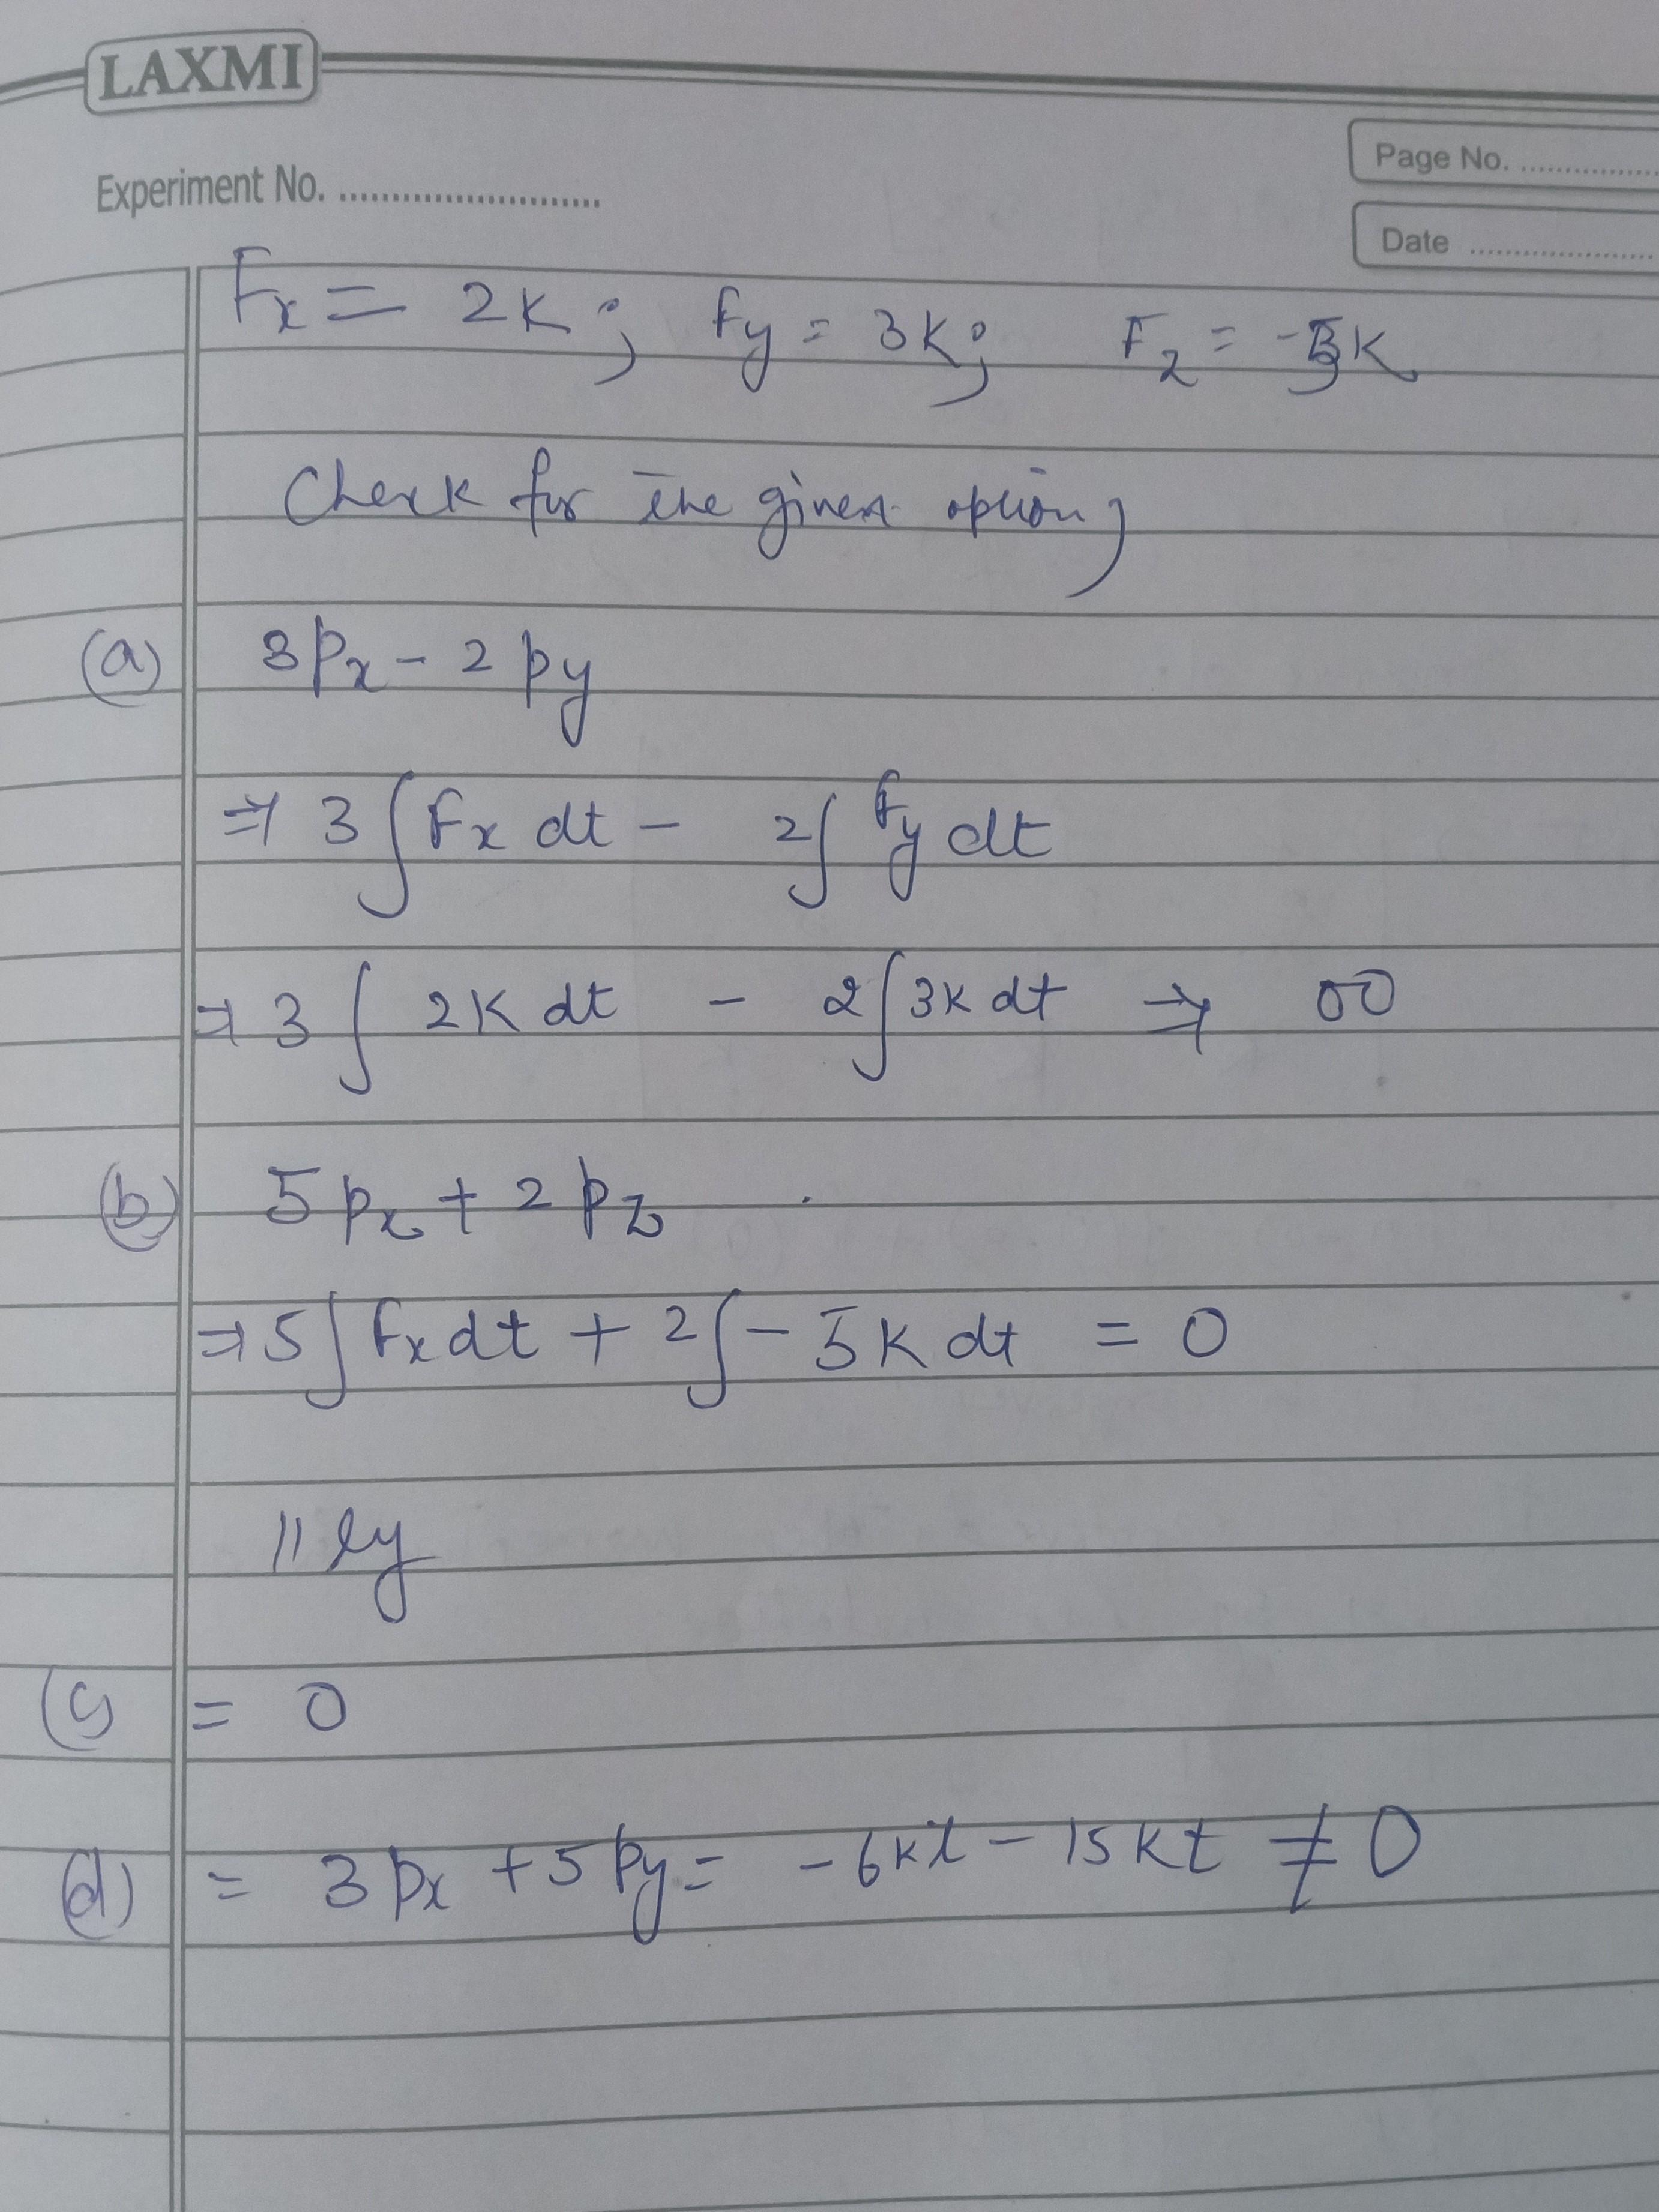 LAXMI
Page No. ................
Experiment No. ..........................
Date ......................
Fx = 2K ; Fy = 3K ; Fz = -5K
Check for the given option,
(a) 3Px - 2Py
⇒ 3 ∫Fx dt - 2∫ Fy dt
⇒ 3 ∫ 2K dt - 2∫3K dt ⇒ 00
(b) 5Px + 2Pz
⇒ 5∫Fx dt + 2∫-5K dt = 0
||ly
(c) = 0
(d) = 3Px + 5Py = -6Kt - 15Kt ≠ 0